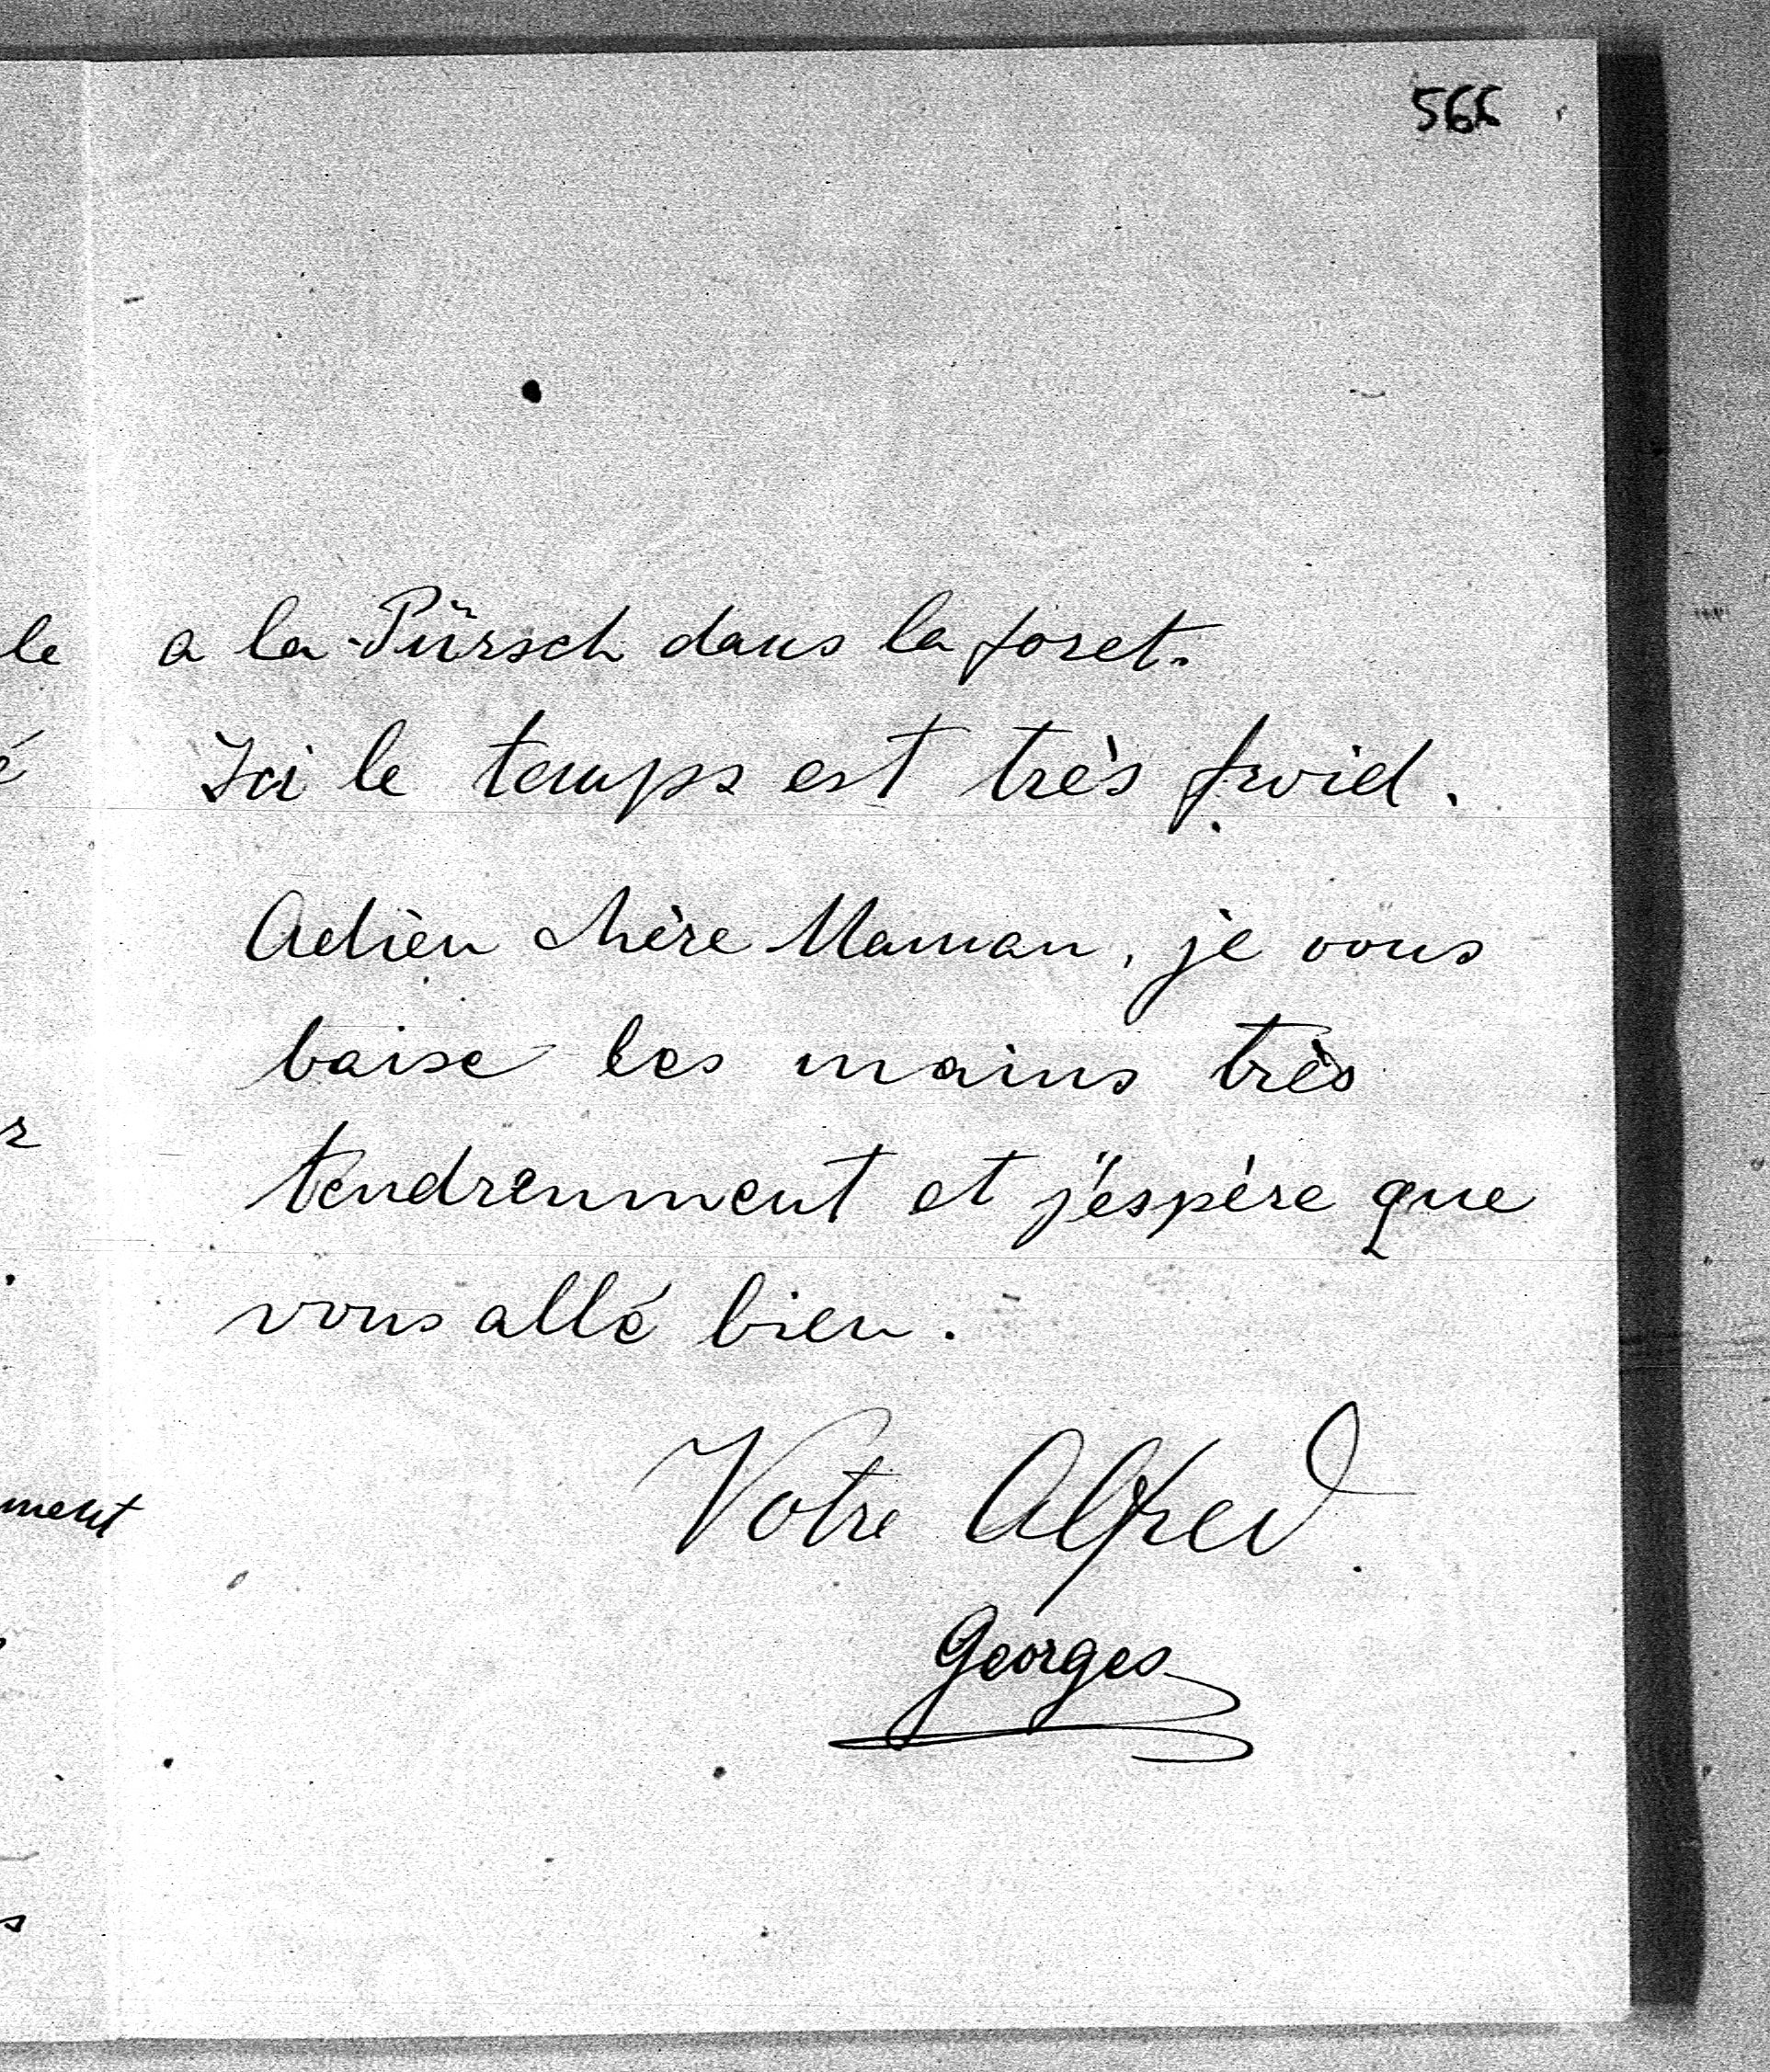 566
a la Pürsch dans la foret.
Ici le temps est très froid.
Adieu chère Maman, je vous
baise les mains très
tendrenment et j'éspère que
vous allé bien.
Votre Alfred
Georges
le
é
r
ment
s